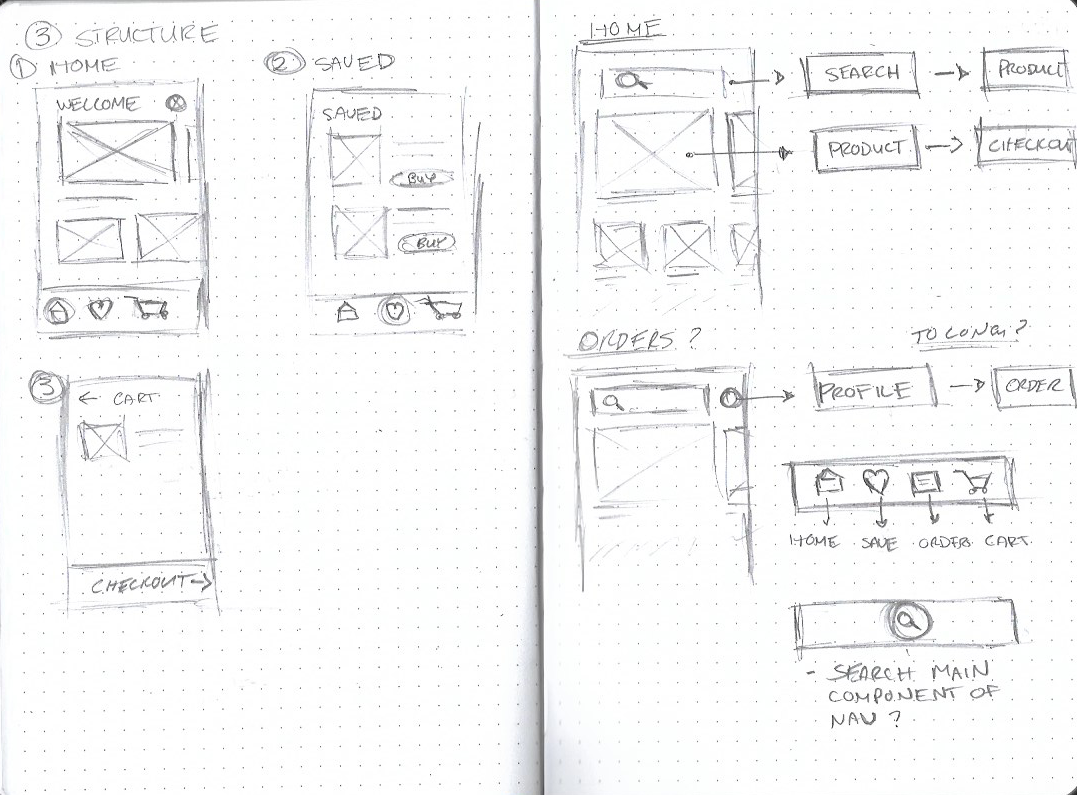 ③ STRUCTURE
① HOME
WELCOME
② SAVED
SAVED
BUY
BUY
③
← CART
CHECKOUT →
HOME
SEARCH → PRODUCT
PRODUCT → CHECKOUT
ORDERS ?
TO LONG ?
PROFILE → ORDER
HOME SAVE ORDER CART
- SEARCH MAIN
COMPONENT OF
NAV ?